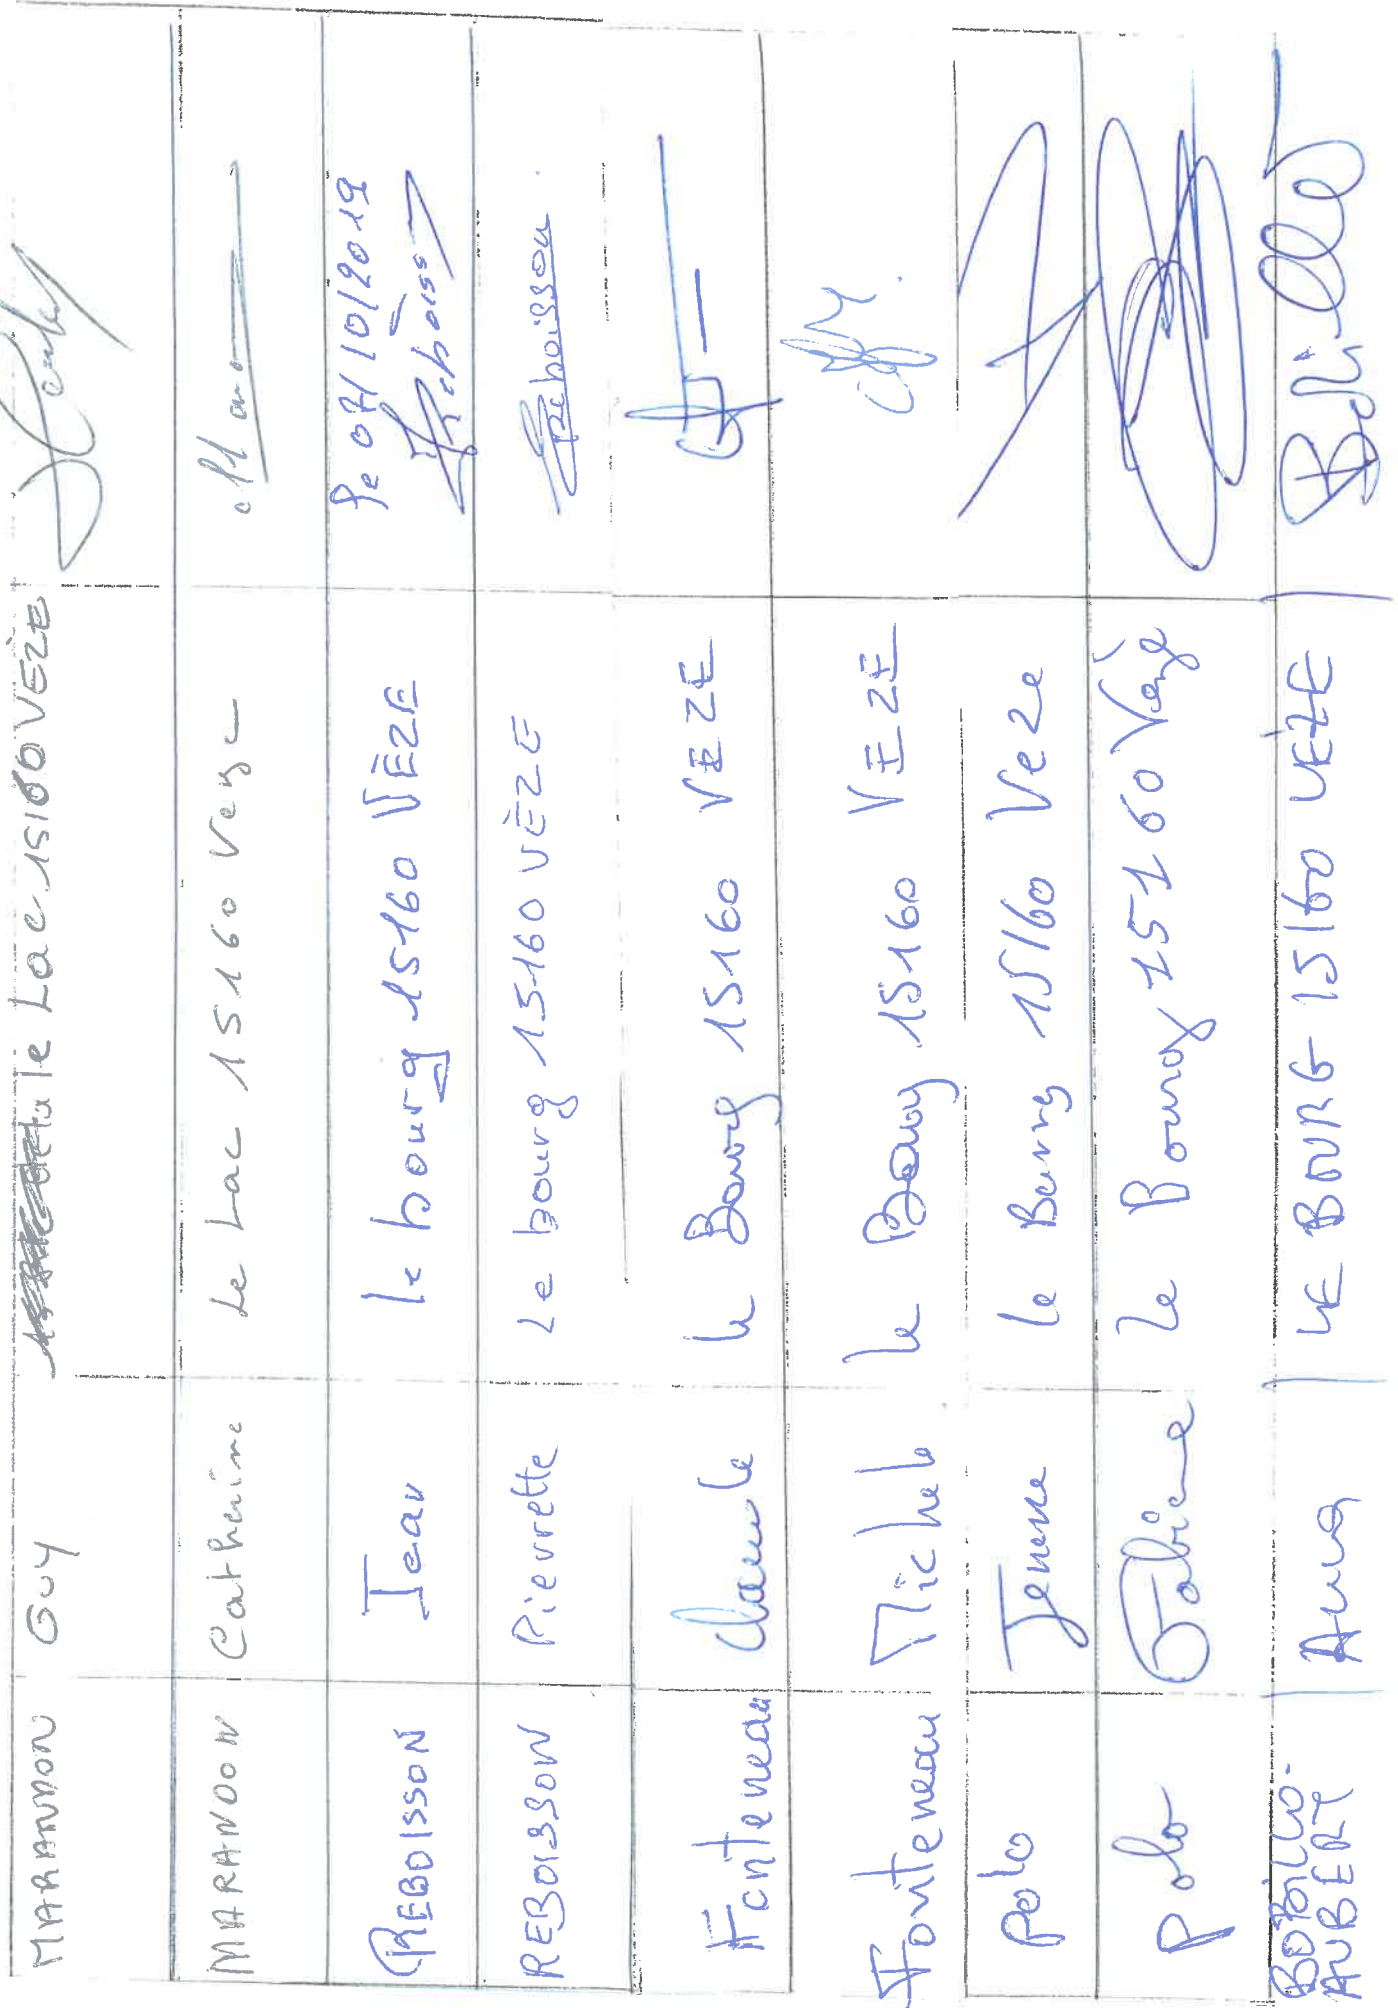 MARANDON GUY le Lac 15160 VÈZE
MARANDON Catherine Le Lac 15160 Veze
REBOISSON Jean le bourg 15160 VÈZE Le 07/10/2019 Reboiss
REBOISSON Pierrette Le bourg 15160 VÈZE Reboisson
Fonteneau Claude le Bourg 15160 VEZE
Fonteneau Michele le Bourg 15160 VEZE
Polo le Bourg 15160 Veze
Polo Fabien Le Bourg 15160 Vèze
BOBILLO- Anna LE BOURG 15160 VEZE Bobillo
AUBERT